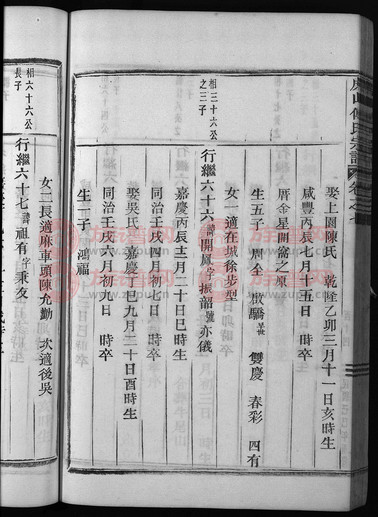 娶上園陳氏 乾隆乙卯三月十一日亥時生
咸豐丙辰七月十五日 時卒
厝金星開窩之原
生五子 厝全 雙慶 春彩 四有
女一適在城徐步型
相三十六公之三子
行繼六十六諱開鳳字振韶號亦儀
嘉慶丙辰十二月二十日巳時生
同治壬戌六月初一日 時卒
娶吳氏 嘉慶丁巳九月二十日酉時生
同治壬戌六月初九日 時卒
生一子 鴻福
相六十六公長子
行繼六十七諱祖有字秉友
女二長適麻車頭陳允勷 次適後吳